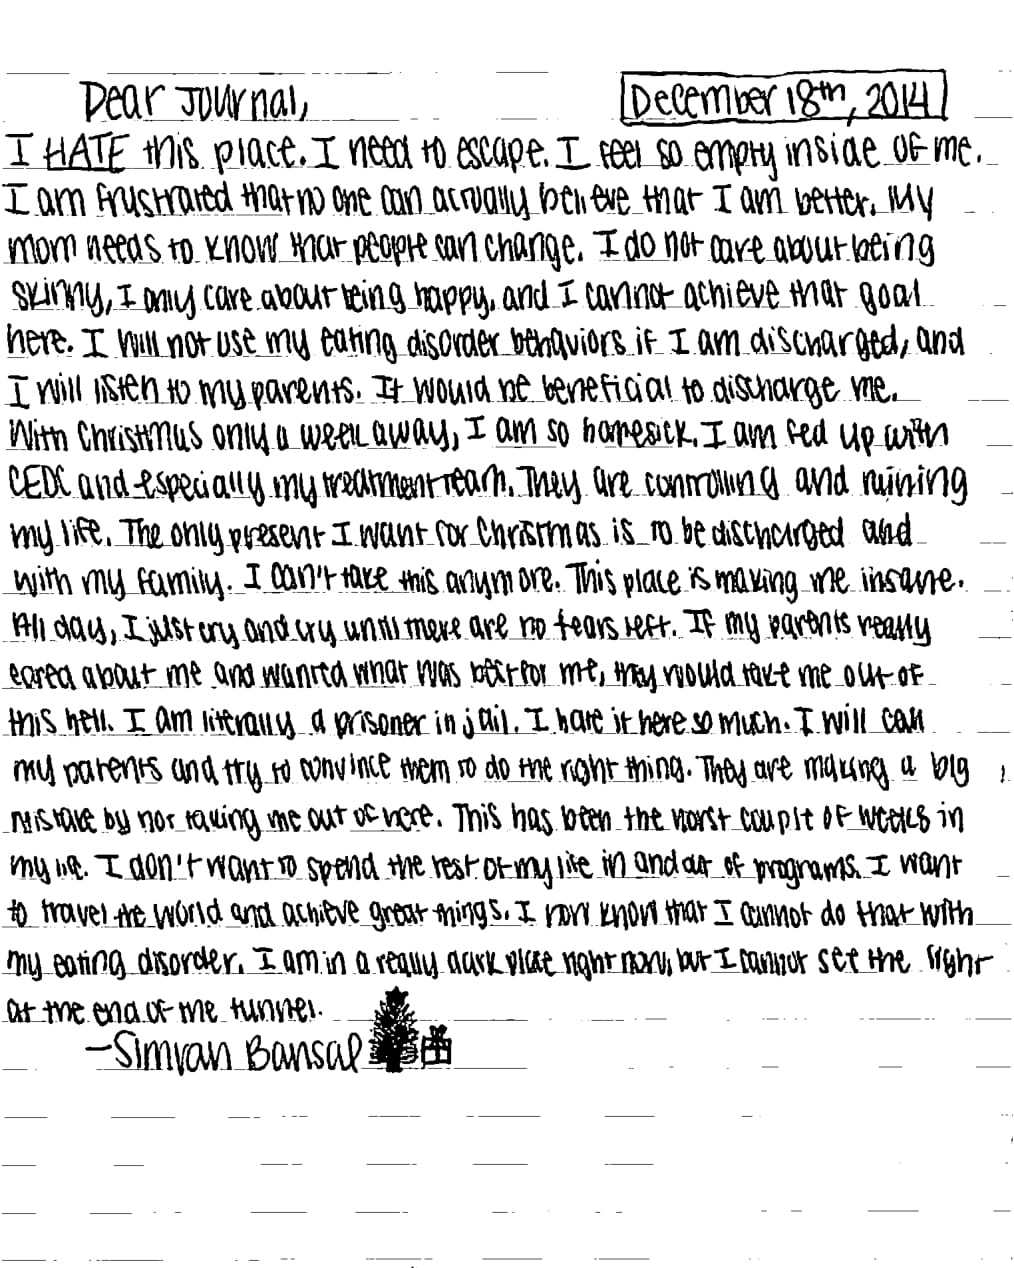 Dear Journal,
December 18th, 2014
I HATE this place. I need to escape. I feel so empty inside of me.
I am frustrated that no one can actually believe that I am better. My
mom needs to know that people can change. I do not care about being
skinny, I only care about being happy, and I cannot achieve that goal
here. I will not use my eating disorder behaviors if I am discharged, and
I will listen to my parents. It would be beneficial to discharge me.
With Christmas only a week away, I am so homesick. I am fed up with
CEDC and especially my treatment team. They are controlling and ruining
my life. The only present I want for Christmas is to be discharged and
with my family. I can't take this anymore. This place is making me insane.
All day, I just cry and cry until there are no tears left. If my parents really
cared about me and wanted what was best for me, they would take me out of
this hell. I am literally a prisoner in jail. I hate it here so much. I will call
my parents and try to convince them to do the right thing. They are making a big
mistake by not taking me out of here. This has been the worst couple of weeks in
my life. I don't want to spend the rest of my life in and out of programs. I want
to travel the world and achieve great things. I now know that I cannot do that with
my eating disorder. I am in a really dark place right now, but I cannot see the light
at the end of the tunnel.
-Simran Bansal